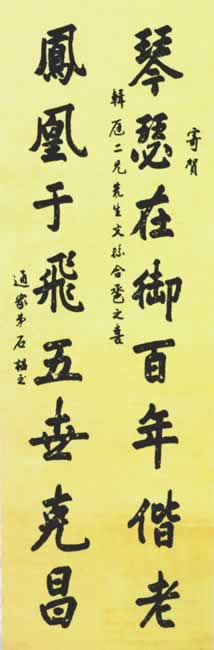 寄賀
琴瑟在御百年偕老
二兄先生文孫合卺之喜
鳳凰于飛五世克昌
通家弟石